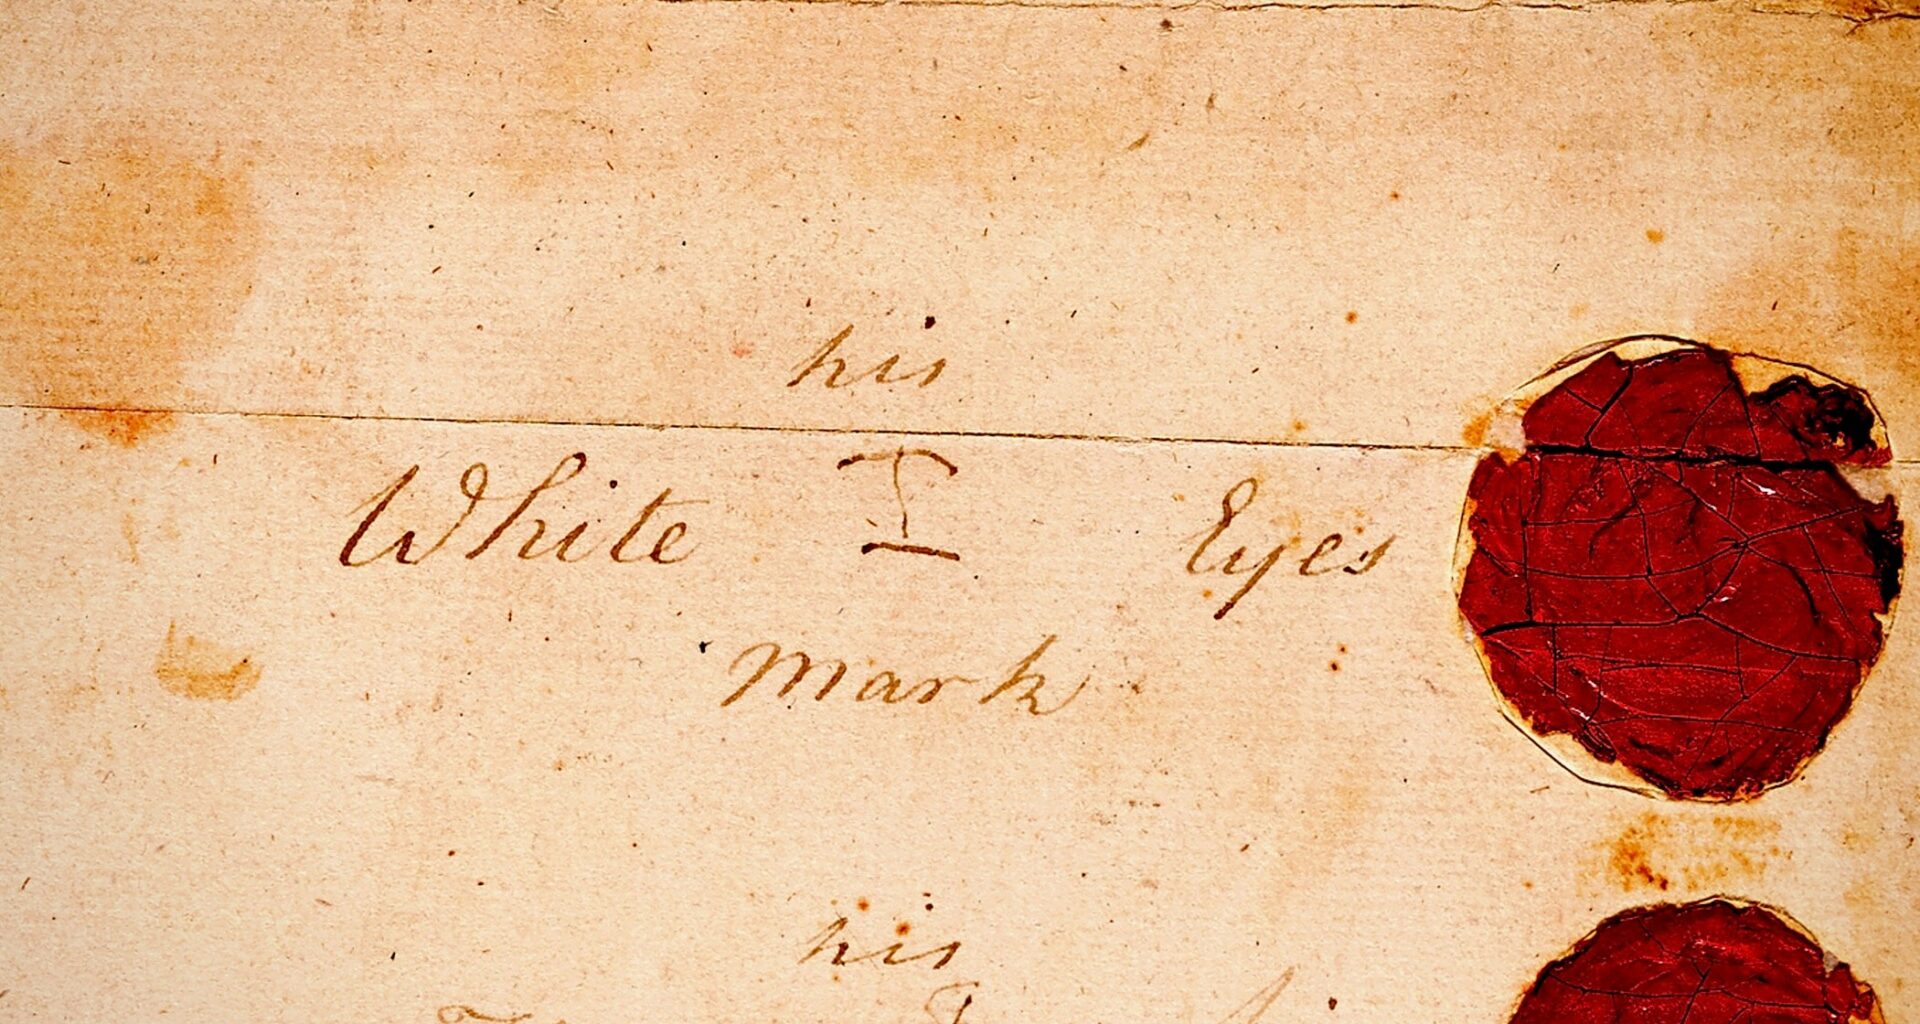 his
White I Eyes
mark
his